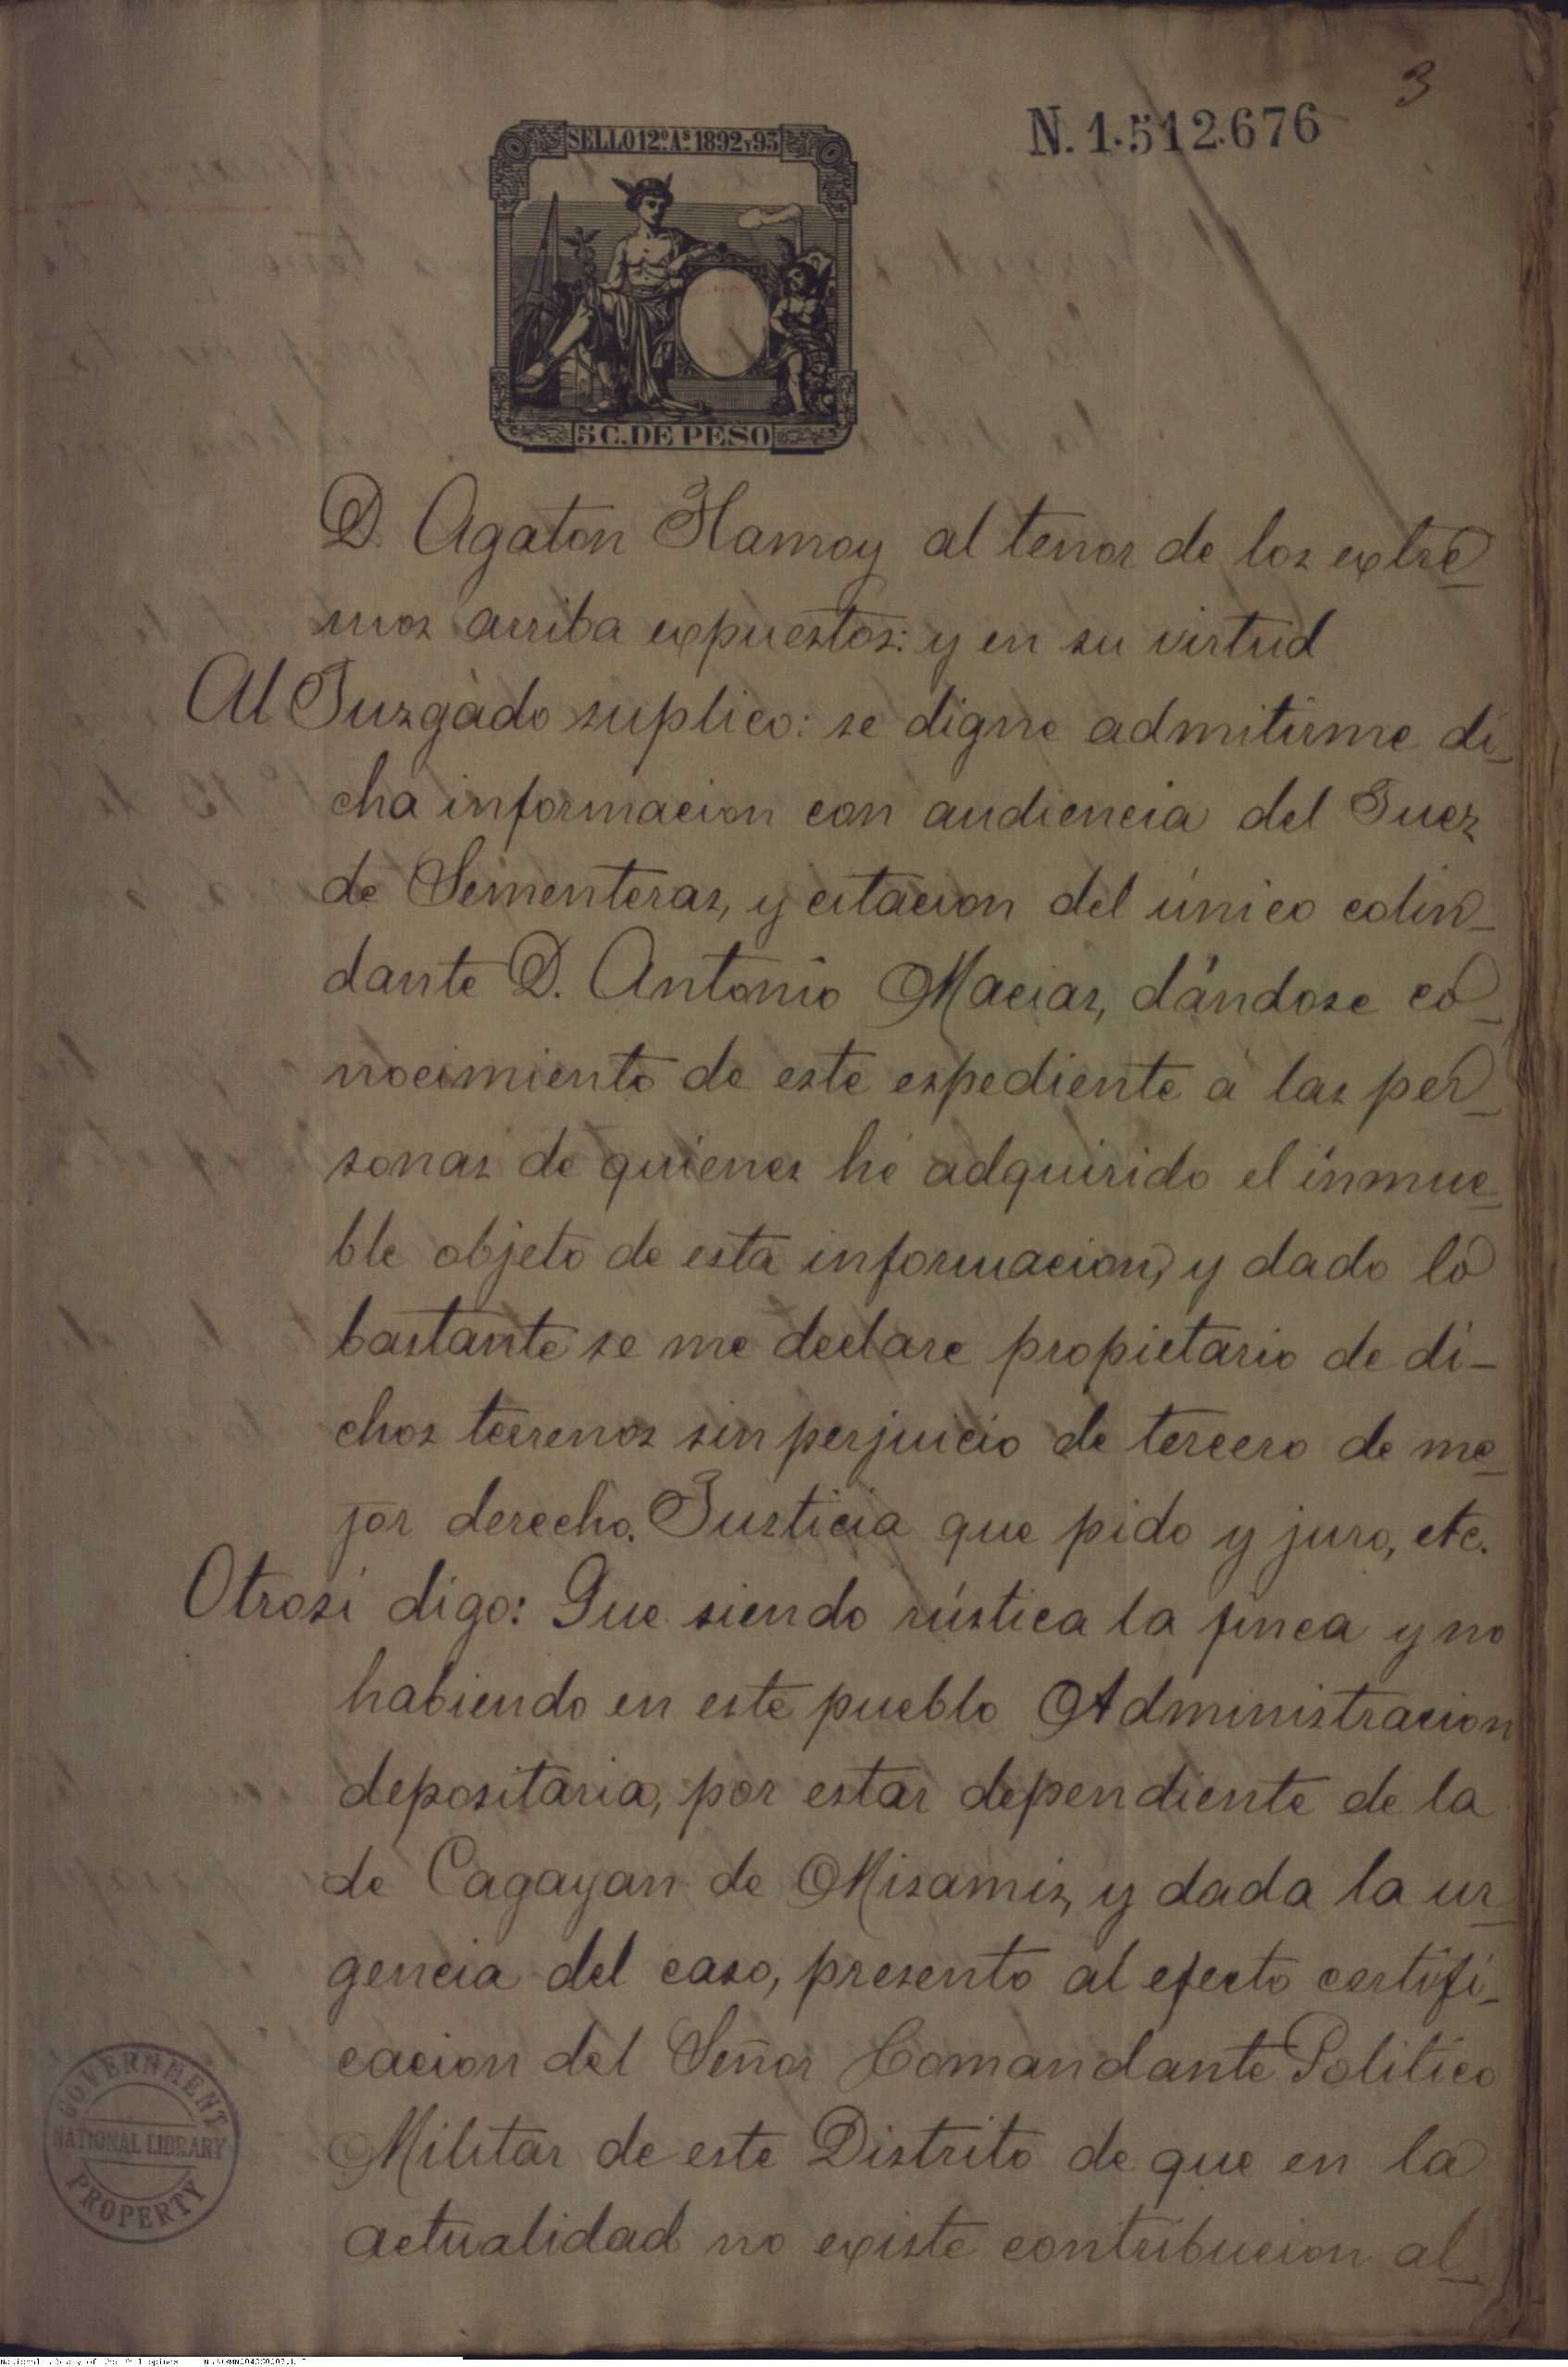 3
N. 1.512.676
SELLO 12º. Aˢ. 1892 Y 93
5 C. DE PESO
D. Agaton Hamoy al tenor de los extre_
mos arriba expuestos: y en su virtud
Al Juzgado suplico: se digne admitirme di_
cha informacion con audiencia del Juez
de Sementeras, y citacion del único colin_
dante D. Antonio Macias, dándose co_
nocimiento de este espediente á las per_
sonas de quienes hé adquirido el inmue_
ble objeto de esta informacion, y dado lo
bastante se me declare propietario de di_
chos terrenos sin perjuicio de tercero de me_
jor derecho. Justicia que pido y juro, etc.
Otrosi digo: Que siendo rústica la finca y no
habiendo en este pueblo Administracion
depositaria, por estar dependiente de la
de Cagayan de Misamis, y dada la ur_
gencia del caso, presento al efecto certifi_
cacion del Señor Comandante Politico
Militar de este Distrito de que en la
actualidad no existe contribucion al_
GOVERNMENT
NATIONAL LIBRARY
PROPERTY